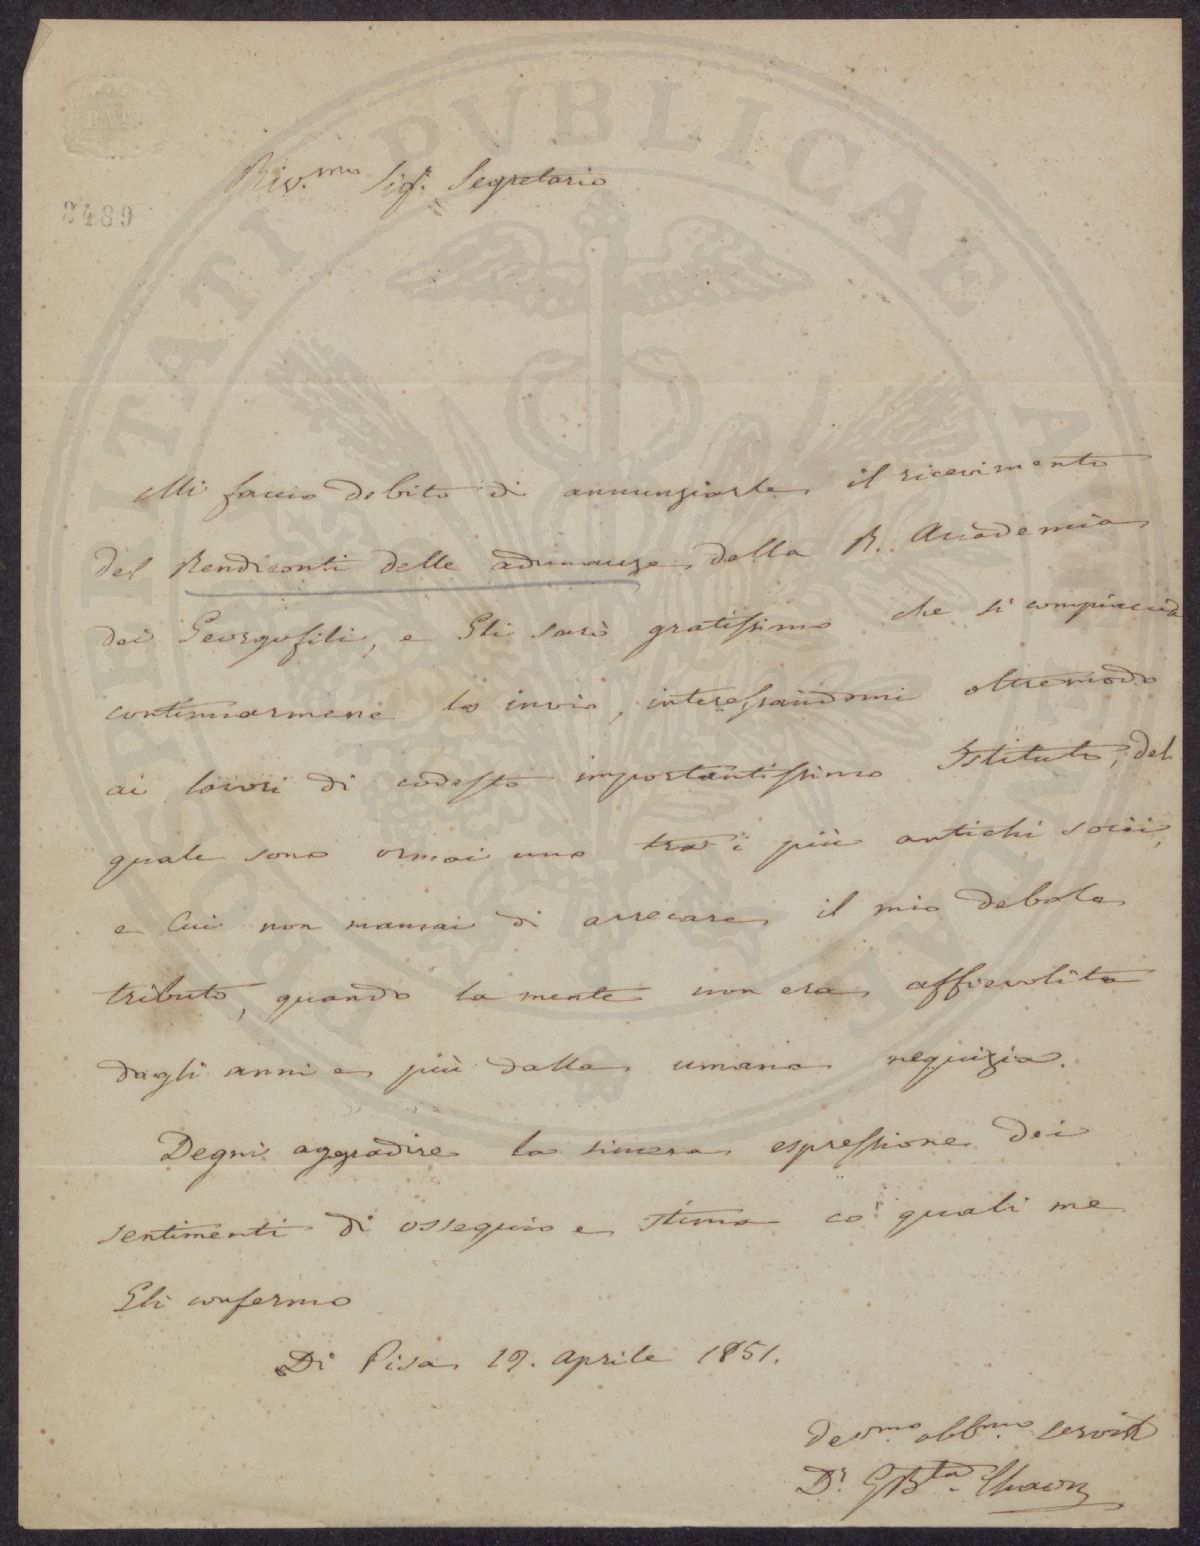 PROSPERITATI PVBLICAE AVGENDAE
Riv.mo Sigr. Segretario
3489
Mi faccio debito di annunziarle il ricevimento
del Rendiconti delle adunanze della R. Accademia
dei Georgofili, e Gli sarò gratissimo che si compiaccia
continuarmene lo invio, interessandomi oltremodo
ai lavori di codesto importantissimo Istituto, del
quale sono ormai uno tra i più antichi socii,
e Cui non mancai di arrecare il mio debole
tributo, quando la mente non era affievolita
dagli anni e più dalla umana nequizia.
Degni aggradire la sincera espressione dei
sentimenti di ossequio e stima co' quali me
Gli confermo
Di Pisa 19. Aprile 1851.
Dev.mo obb.mo servit
Dr. GBta.